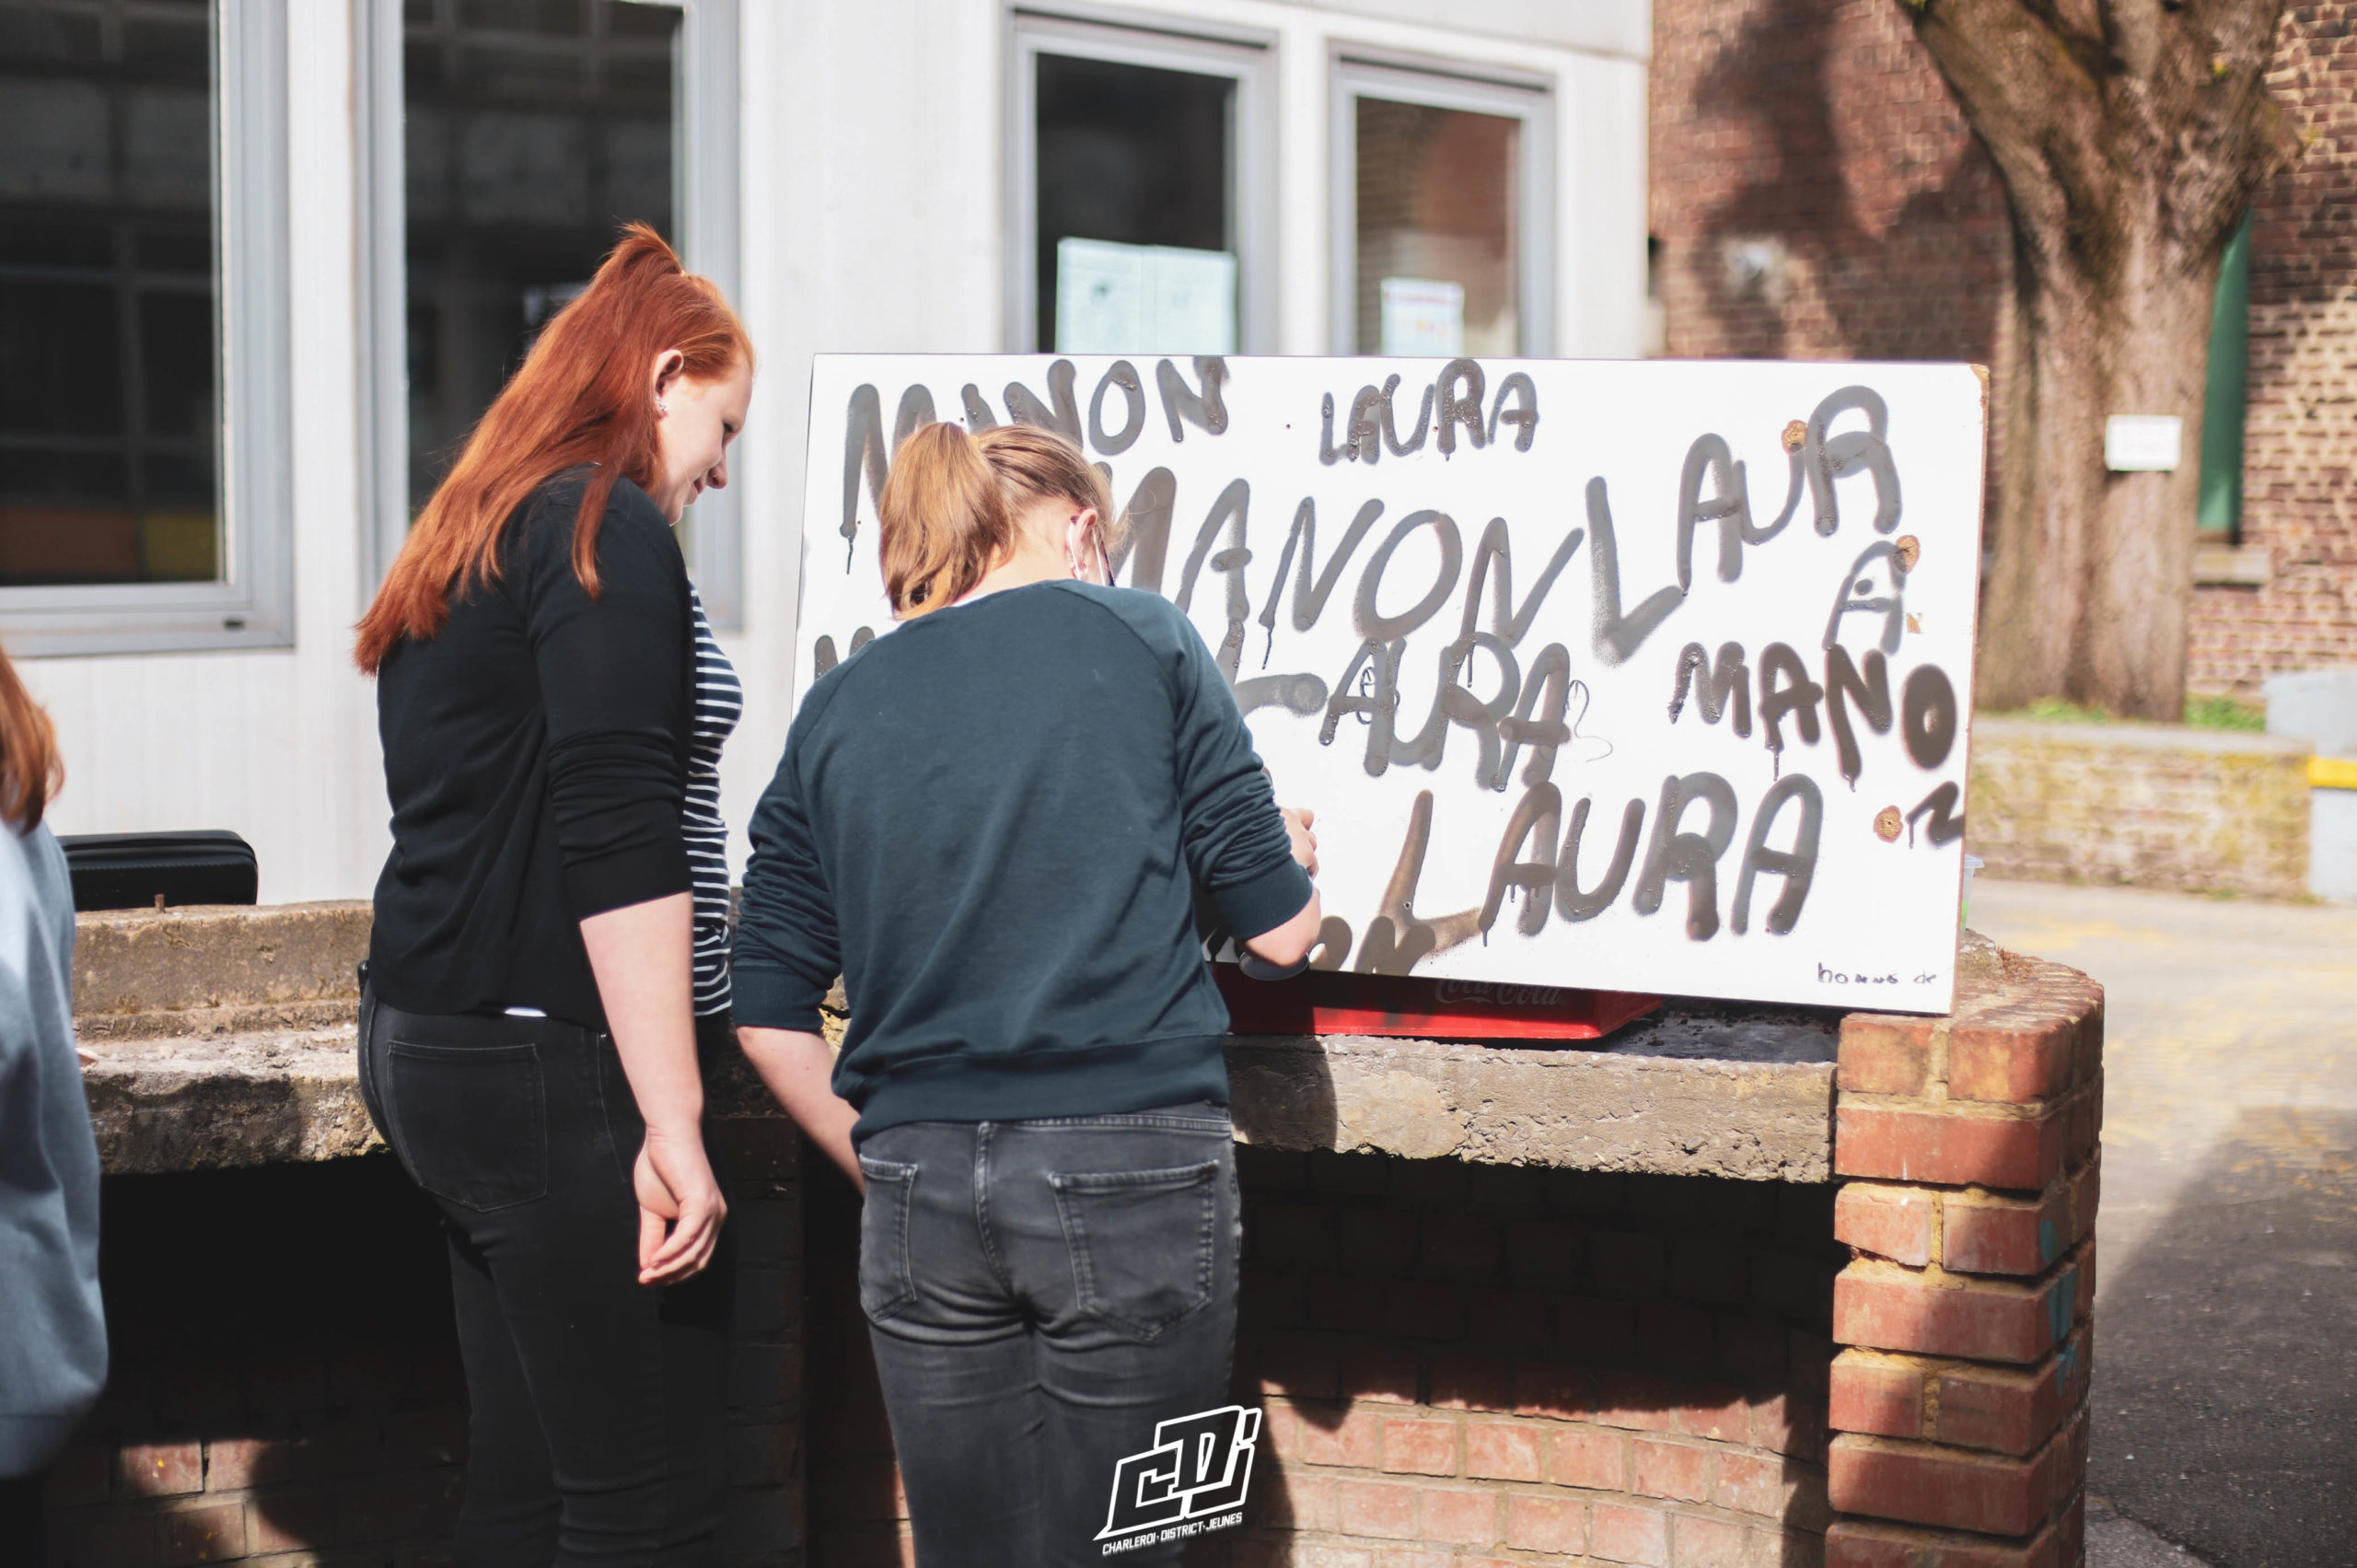 MANON LAURA
MANON LAURA
LAURA MANON
LAURA
homme de
Coca Cola
CDJ
CHARLEROI · DISTRICT · JEUNES